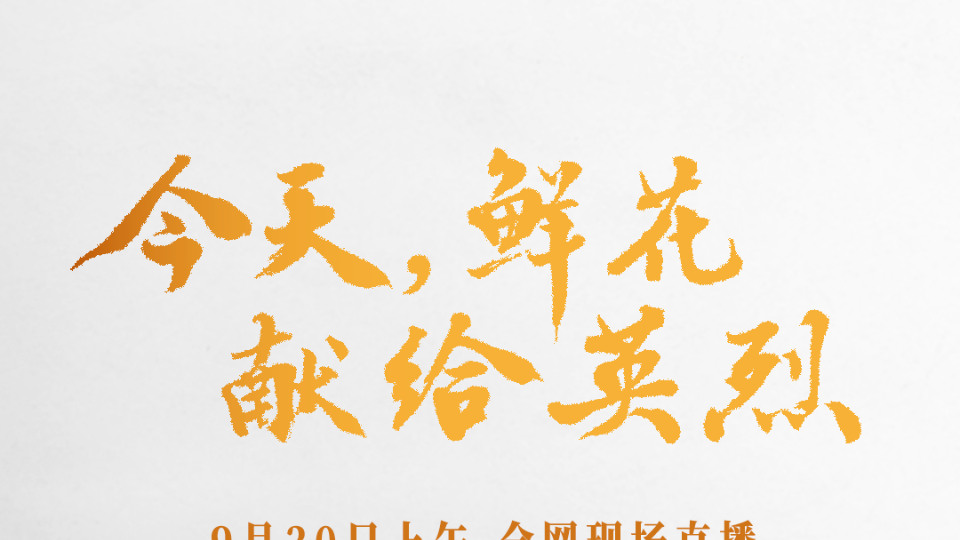 今天，鲜花
献给英烈
9月30日上午 全网现场直播